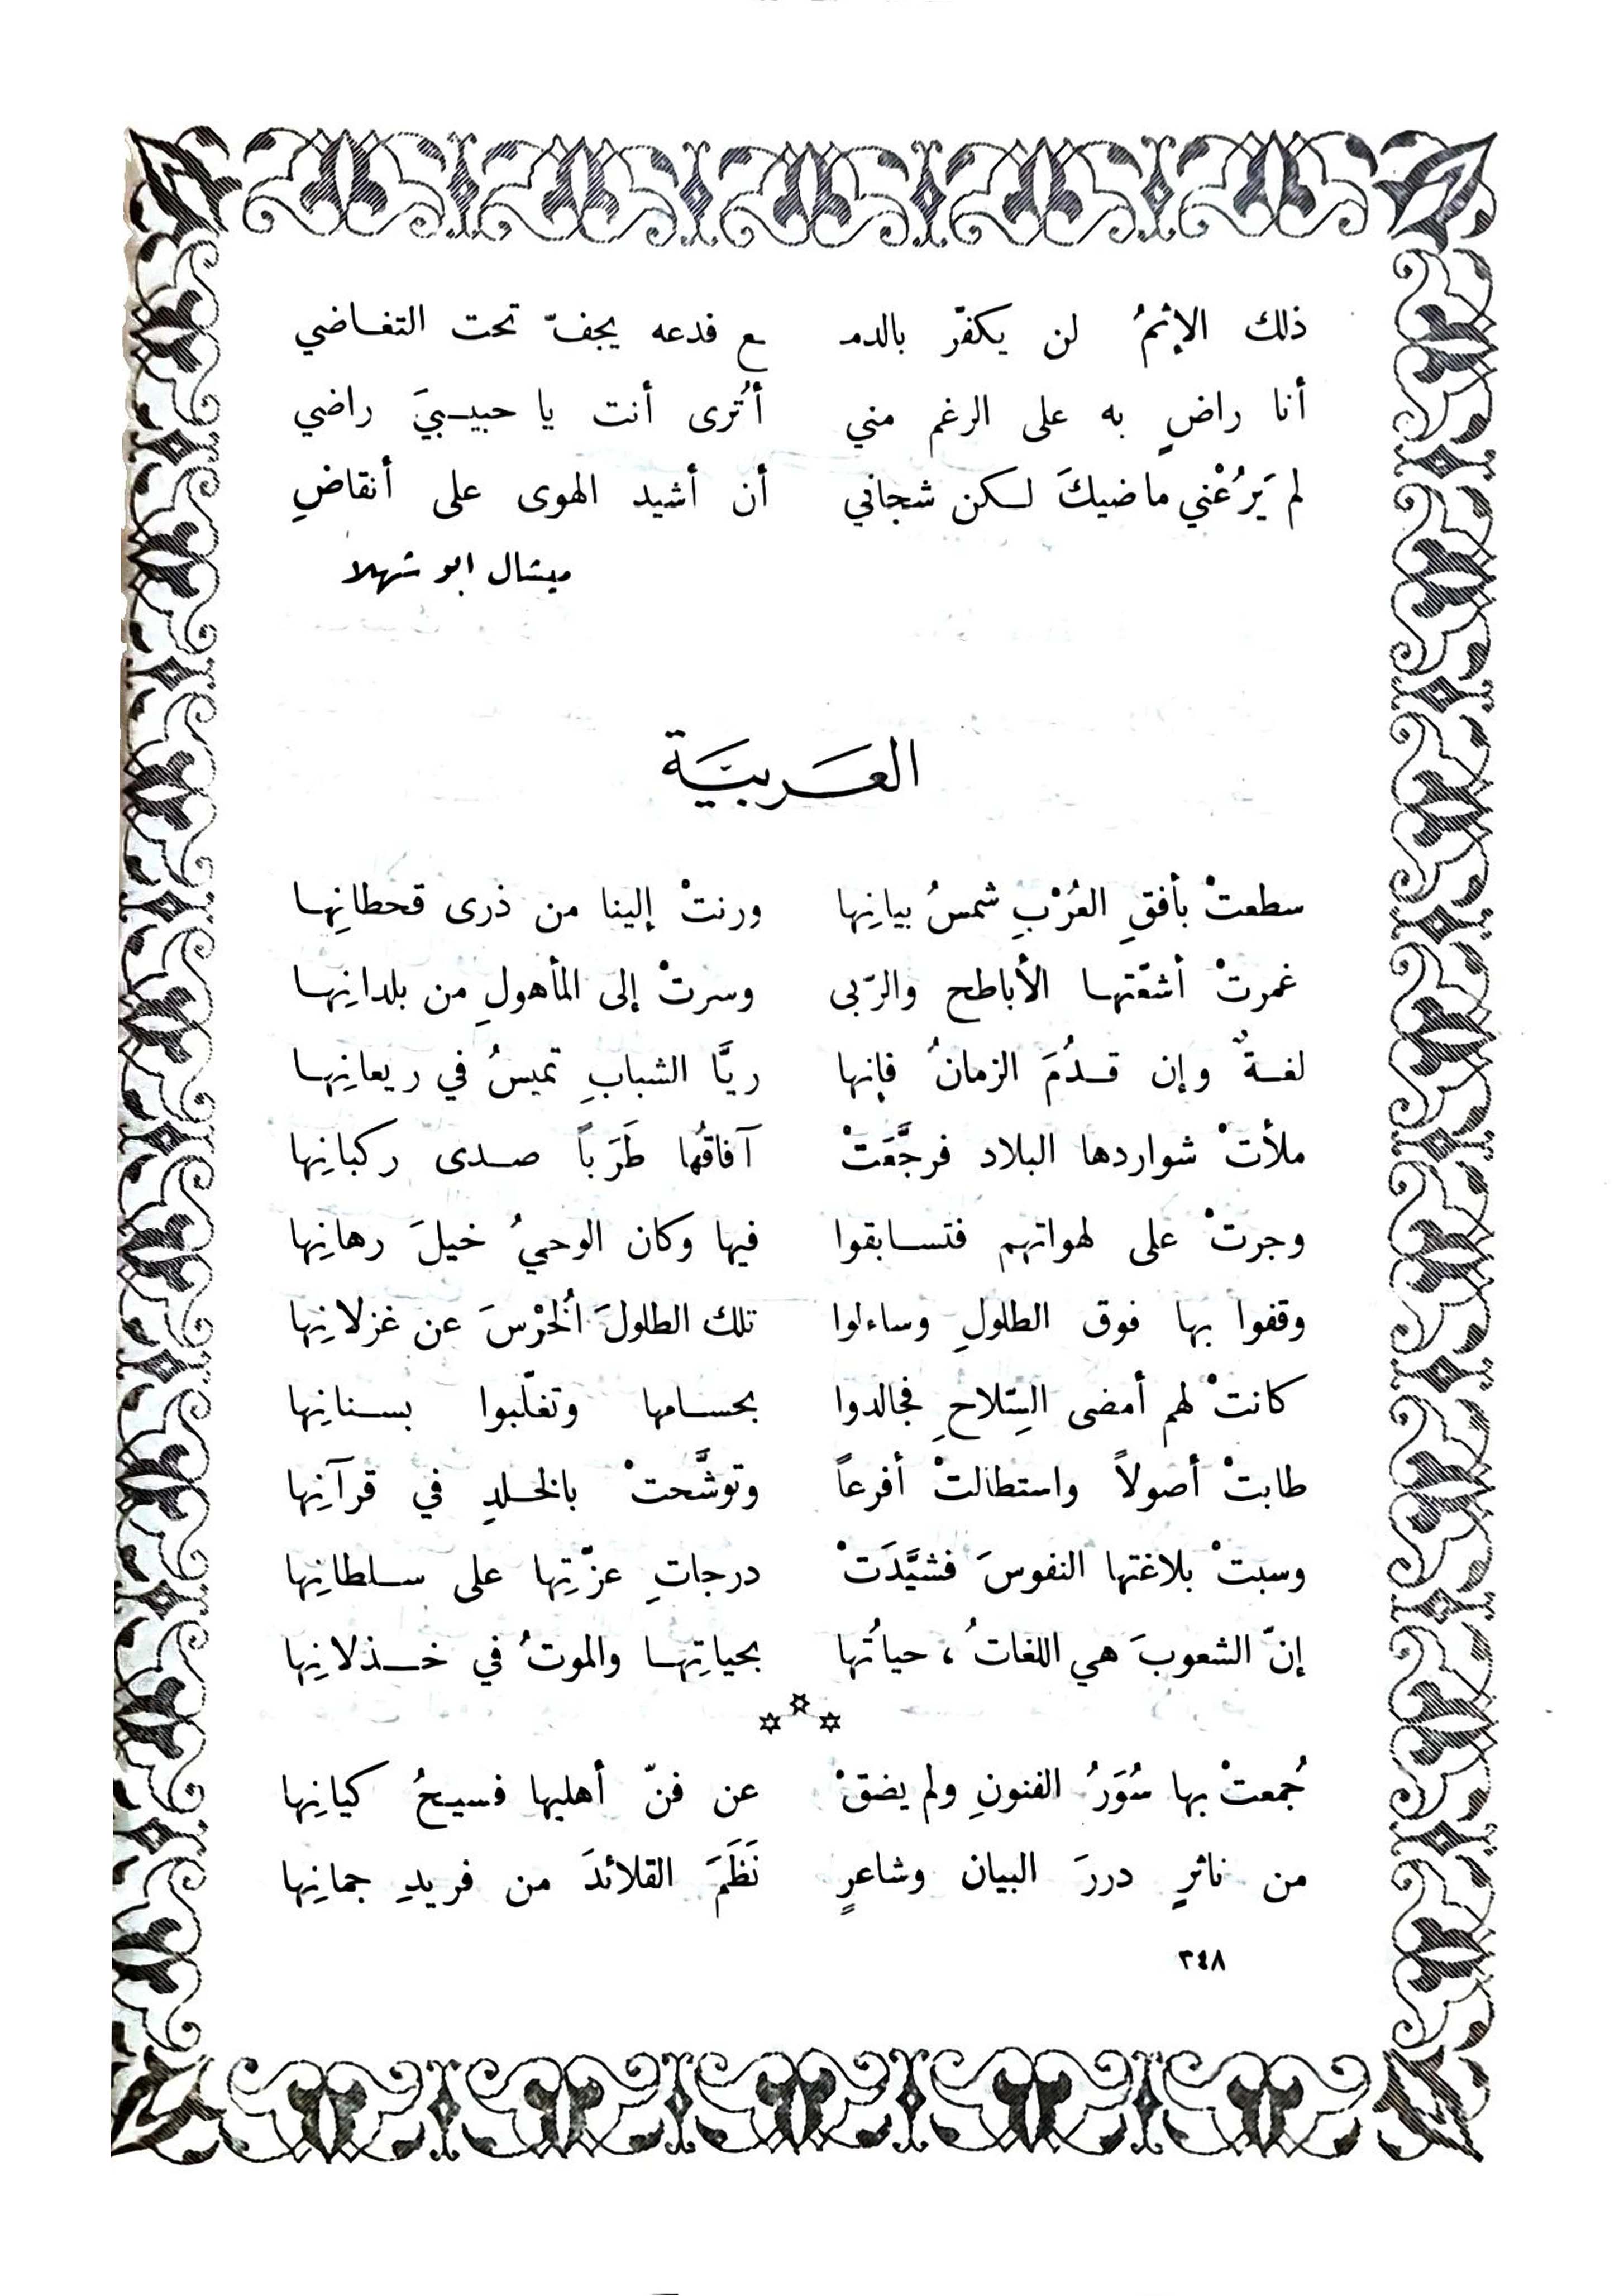 ذلك الإثمُ لن يكفّر بالدمـ ـع فدعه يجفّ تحت التغاضي
أنا راضٍ به على الرغم مني أتُرى أنت يا حبيبيَ راضي
لم يَرُعْني ماضيكَ لكن شجاني أن أشيد الهوى على أنقاضِ
ميشال ابو شهلا
العَربيَّة
سطعتْ بأفقِ العُرْبِ شمسُ بيانِها ورنتْ إلينا من ذرى قحطانِها
غمرتْ أشعّتها الأباطح والرّبى وسرتْ إلى المأهولِ من بلدانِها
لغةٌ وإن قدُمَ الزمانُ فإنها ريَّا الشبابِ تميسُ في ريعانِها
ملأتْ شواردها البلاد فرجَّعَتْ آفاقُها طَرَباً صدى ركبانِها
وجرتْ على لهواتهم فتسابقوا فيها وكان الوحيُ خيلَ رهانِها
وقفوا بها فوق الطلولِ وساءلوا تلك الطلولَ الُخرْسَ عن غزلانِها
كانتْ لهم أمضى السِّلاحِ فجالدوا بحسامها وتغلّبوا بسنانِها
طابتْ أصولاً واستطالتْ أفرعاً وتوشَّحتْ بالخلدِ في قرآنِها
وسبتْ بلاغتها النفوسَ فشيَّدَتْ درجاتِ عزّتِها على سلطانِها
إنّ الشعوبَ هي اللغاتُ ، حياتُها بحياتِها والموتُ في خذلانِها
جُمعتْ بها سُوَرُ الفنونِ ولم يضقْ عن فنّ أهليها فسيحُ كيانِها
من ناثرٍ دررَ البيان وشاعرٍ نَظَمَ القلائدَ من فريدِ جمانِها
٢٤٨